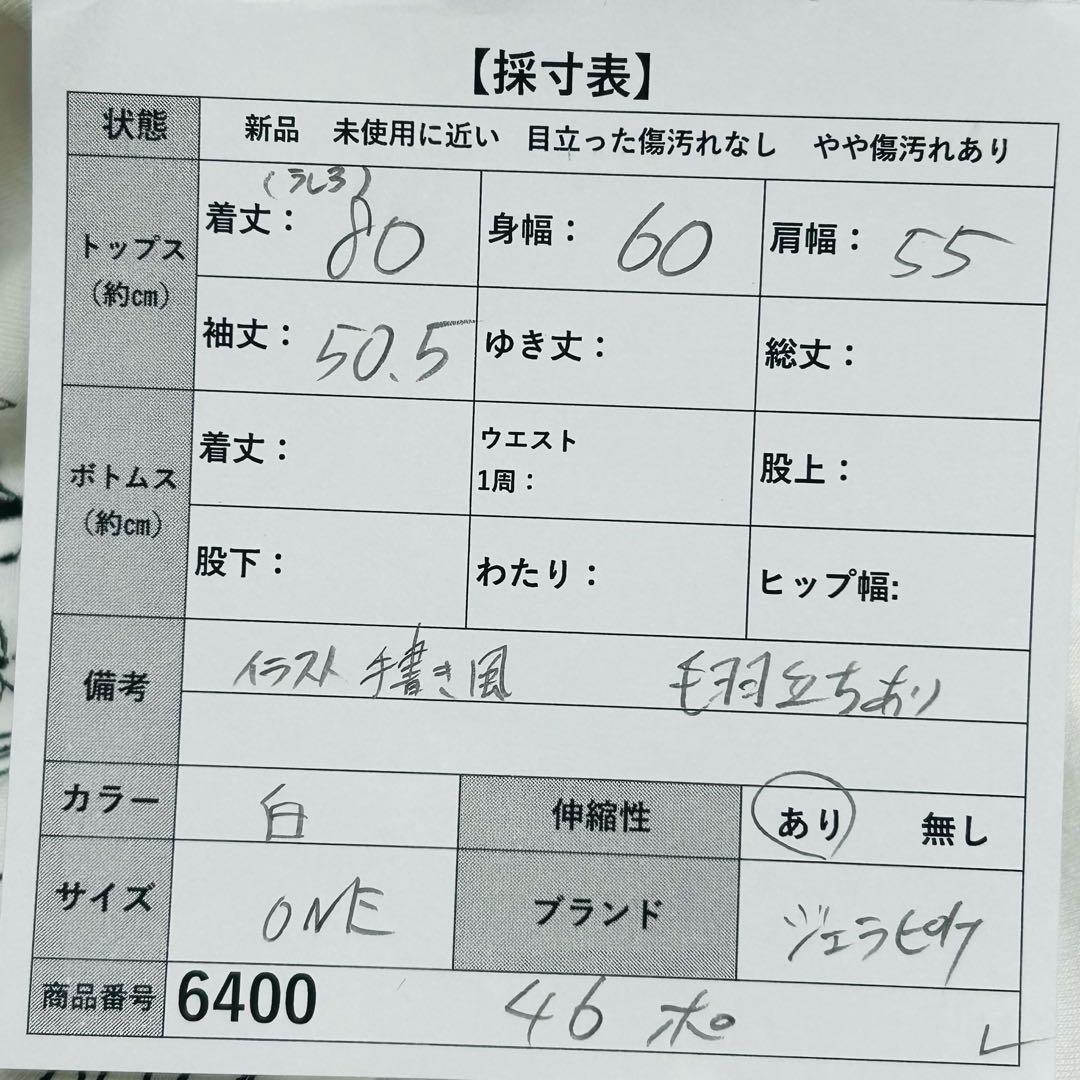 【採寸表】
状態 新品 未使用に近い 目立った傷汚れなし やや傷汚れあり
トップス
（約cm）
(うしろ)
着丈： 80 身幅： 60 肩幅： 55
袖丈： 50.5 ゆき丈： 総丈：
ボトムス
（約cm）
着丈： ウエスト
1周： 股上：
股下： わたり： ヒップ幅:
備考 イラスト 手書き風 毛羽立ちあり
カラー 白 伸縮性 あり 無し
サイズ ONE ブランド ジェラピケ
商品番号 6400 46 ポ